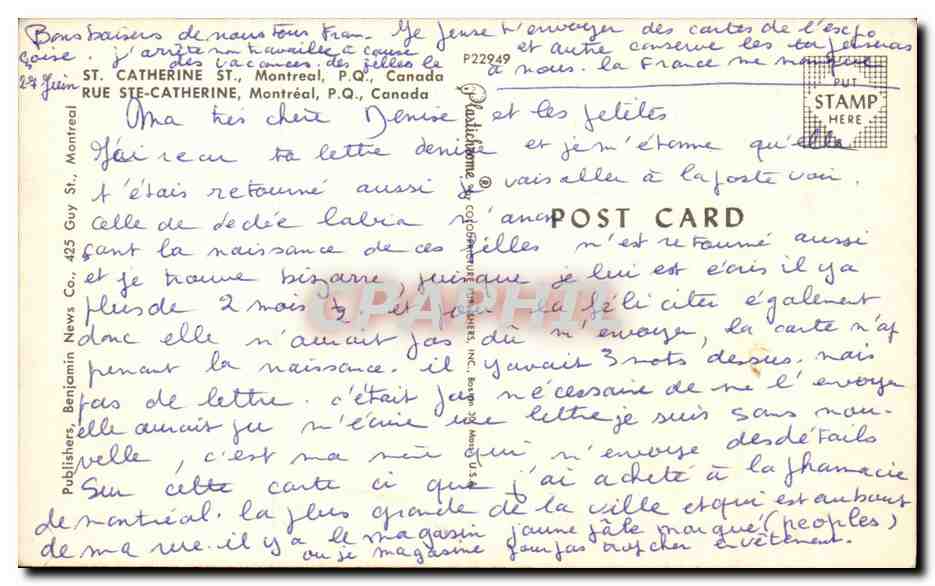 Bons baisers de nous tous Fran- Je pense t'envoyer des cartes de l'expo
çoise. j'arrête mon travail à cause et autre conserve les tu penseras
des vacances des filles le à nous. la France me manque
27 Juin
P22949
ST. CATHERINE ST., Montreal, P.Q., Canada
RUE STE-CATHERINE, Montréal, P.Q., Canada
PUT
STAMP
HERE
Ma très chère Denise et les petites
J'ai reçu ta lettre denise et je m'étonne qu'elle
t'étais retourné aussi je vais aller à la poste voir.
celle de dédée labia m'anon
POST CARD
çant la naissance de ces filles m'est retourné aussi
et je trouve bizarre, puisque je lui est écris il y a
plus de 2 mois ½. et pour la féliciter également
donc elle n'aurait pas dû m'envoyer, la carte m'ap
penant la naissance. il y avait 3 mots dessus. mais
pas de lettre. c'était pas nécessaire de me l'envoyer
elle aurait pu m'écrire une lettre je suis sans nou-
velle, c'est ma mère qui m'envoye des détails
Sur cette carte ci que j'ai acheté à la pharmacie
de montréal. la plus grande de la ville et qui est au bout
de ma rue. il y a le magasin jaune pâle marqué (peoples)
ou je magasine pour pas trop cher en vêtement.
Publishers, Benjamin News Co., 425 Guy St., Montreal
Plastichrome ® by COLOURPICTURE PUBLISHERS, INC., Boston 30, Mass., U.S.A.
CPAPHIL